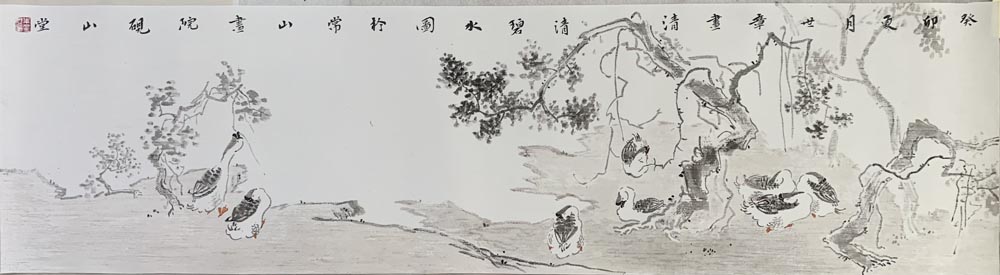 癸卯夏月世章畫清清碧水圖於常山畫院硯山堂